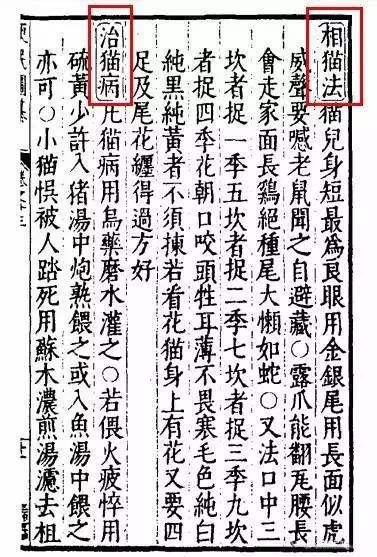 相猫法猫兒身短最爲良眼用金銀尾用長面似虎
威聲要喊老鼠聞之自避藏○露爪能翻尾腰長
會走家面長鷄絕種尾大懶如蛇○又法口中三
坎者捉一季五坎者捉二季七坎者捉三季九坎
者捉四季花朝口咬頭牲耳薄不畏寒毛色純白
純黑純黃者不須揀若看花猫身上有花又要四
足及尾花纏得過方好
治猫病凡猫病用烏藥磨水灌之○若偎火疲悴用
硫黃少許入猪湯中炮熟餵之或入魚湯中餵之
亦可○小猫悮被人踏死用蘇木濃煎湯濾去柤